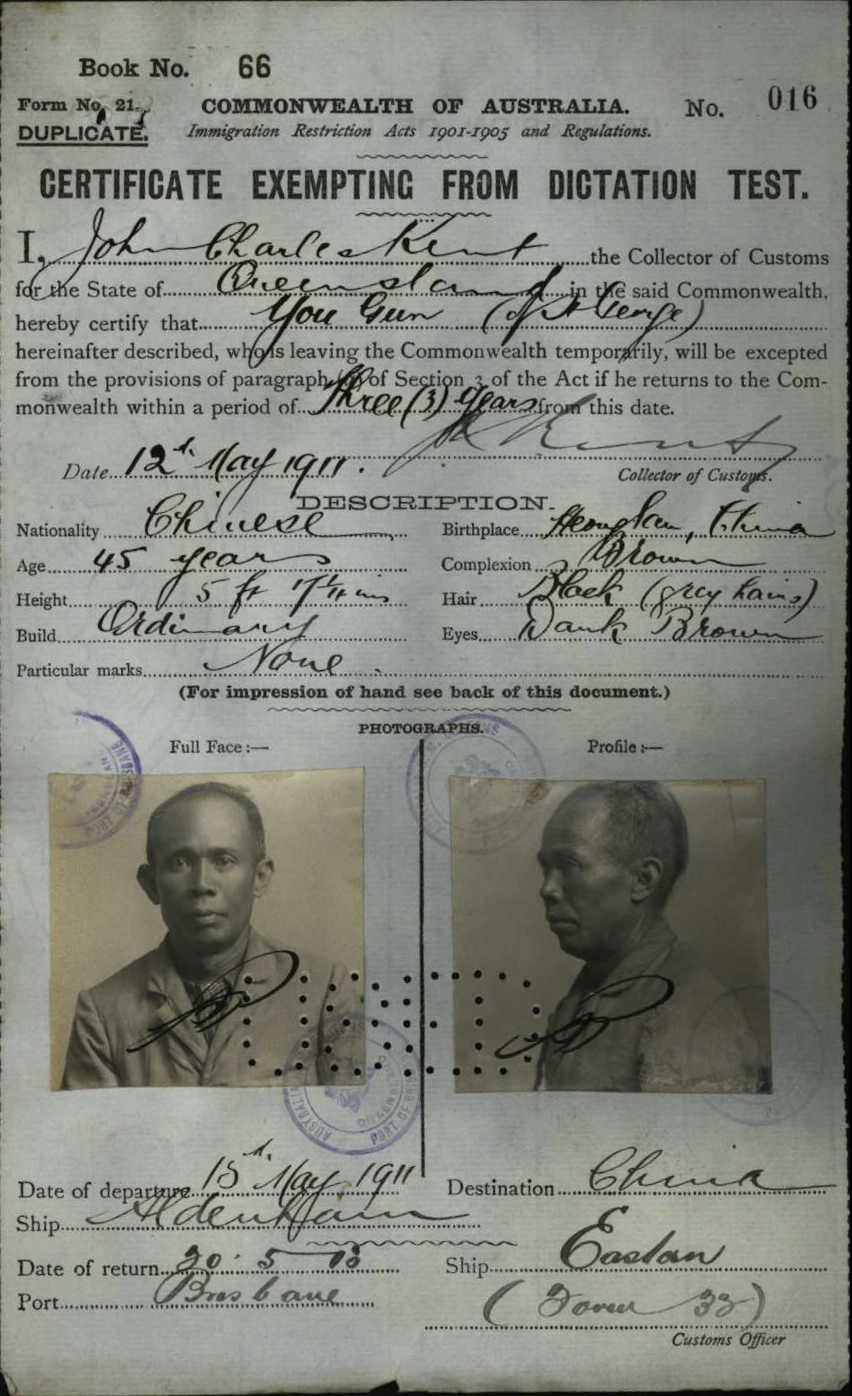 Book No. 66
Form No. 21.
COMMONWEALTH OF AUSTRALIA.
No. 016
DUPLICATE.
Immigration Restriction Acts 1901-1905 and Regulations.
CERTIFICATE EXEMPTING FROM DICTATION TEST.
I, John Charles Kent the Collector of Customs
for the State of Queensland in the said Commonwealth,
hereby certify that You Gun (of St George)
hereinafter described, who is leaving the Commonwealth temporarily, will be excepted
from the provisions of paragraph of Section 3 of the Act if he returns to the Com-
monwealth within a period of Three (3) Years from this date.
Date 12th May 1911.
Collector of Customs.
DESCRIPTION.
Nationality Chinese Birthplace China
Age 45 years Complexion Brown
Height 5 ft 7¼ ins Hair Black (grey hairs)
Build Ordinary Eyes Dark Brown
Particular marks None
(For impression of hand see back of this document.)
PHOTOGRAPHS.
Full Face :— Profile :—
Date of departure 15th May 1911 Destination China
Ship Aldenham
Date of return 20. 5 13 Ship Eastern
Port Brisbane (Form 32)
Customs Officer